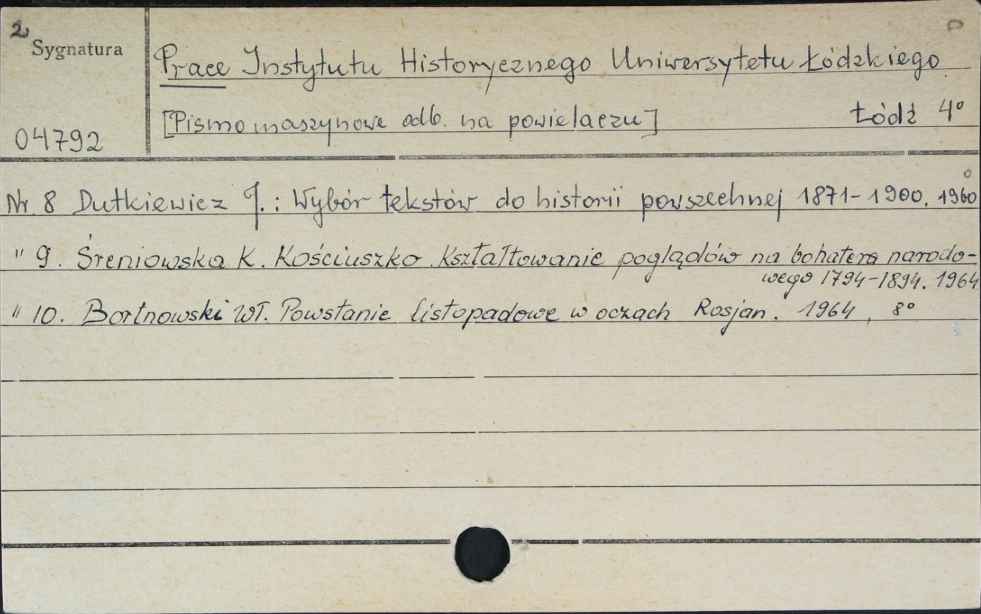 2
Sygnatura
Prace Instytutu Historycznego Uniwersytetu Łódzkiego
[Pismo maszynowe odb. na powielaczu] Łódź 4°
04792
Nr 8 Dutkiewicz J.: Wybór tekstów do historii powszechnej 1871-1900. 1960
" 9. Śreniowska K. Kościuszko Kształtowanie poglądów na bohatera narodo-
wego 1794-1894. 1964
" 10. Bortnowski Wł. Powstanie listopadowe w oczach Rosjan. 1964, 8°